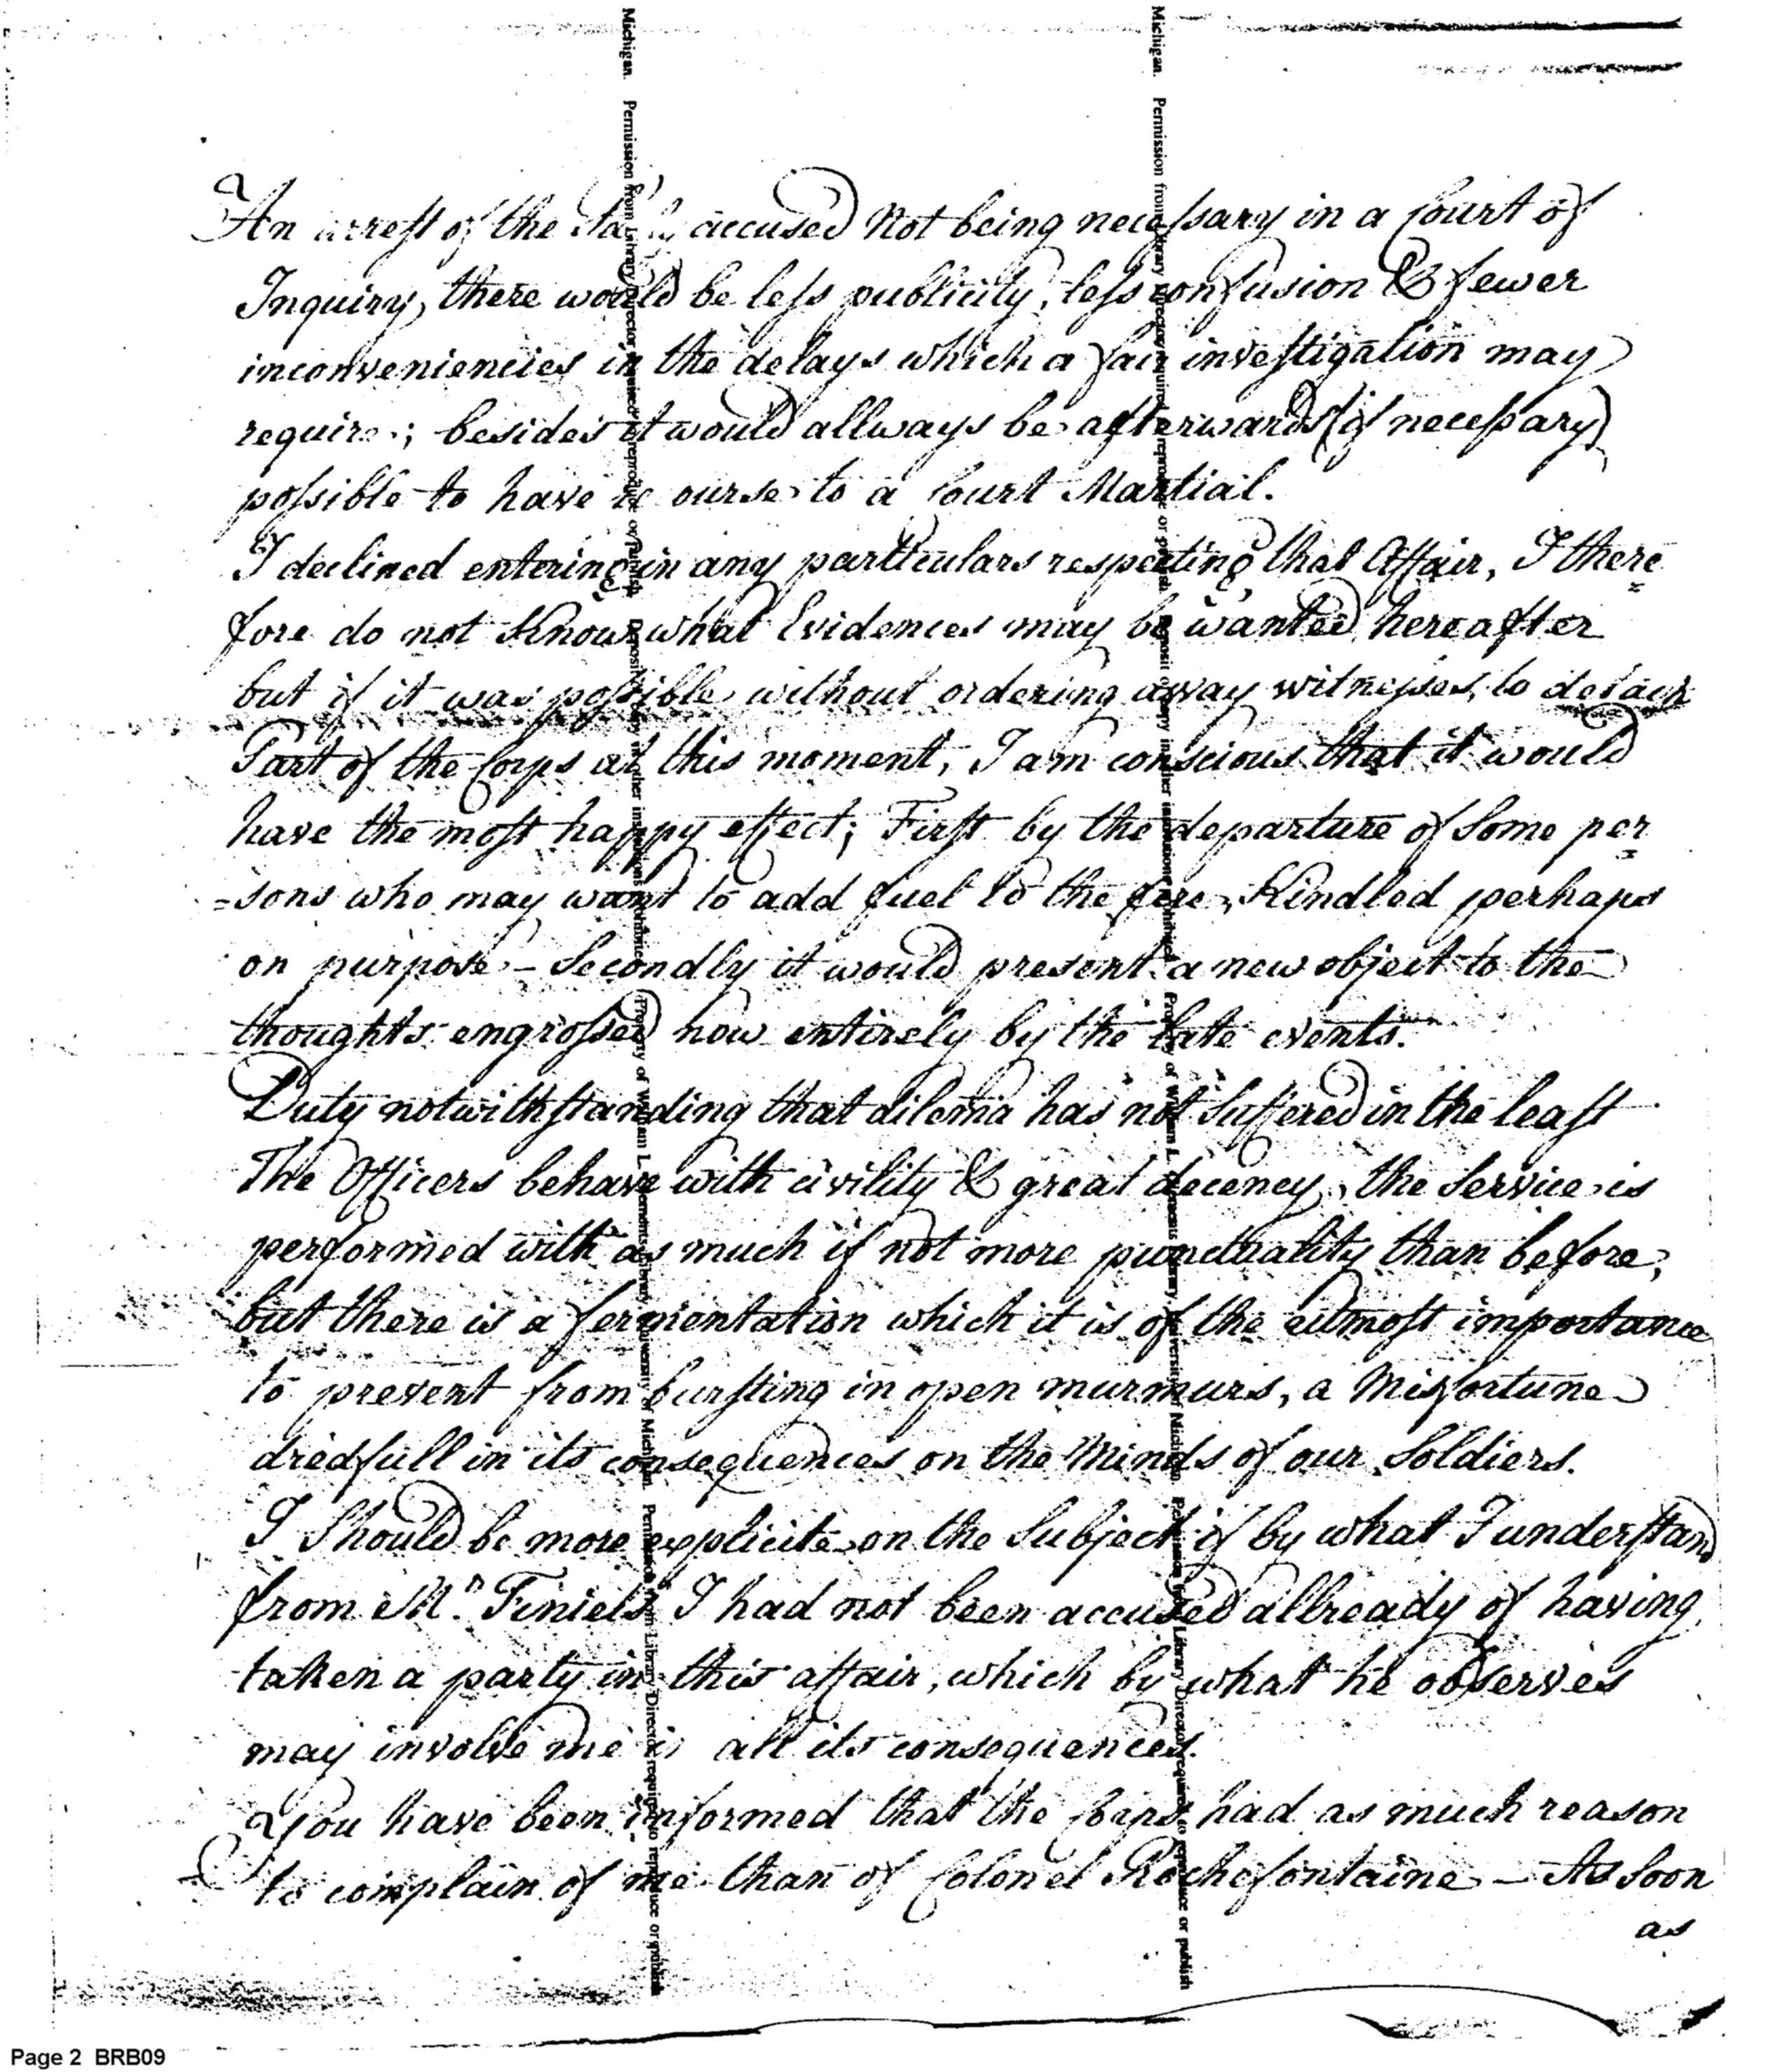 An arrest of the Party accused Not being necessary in a Court of
Inquiry, there would be less publicity, less confusion & fewer
inconveniencies in the delays which a fair investigation may
require; besides it would allways be afterwards (if necessary)
possible to have recourse to a Court Martial.
I declined entering in any particulars respecting that Affair, I there=
fore do not Know what Evidences may be wanted hereafter
but if it was possible without ordering away witnesses, to detach
Part of the Corps at this moment, I am conscious that it would
have the most happy effect; First by the departure of Some per=
=sons who may want to add fuel to the fire, Kindled perhaps
on purpose – Secondly it would present a new object to the
thoughts engrossed now entirely by the late events.
Duty notwithstanding that dilema has not Suffered in the least
The Officers behave with civility & great decency, the Service is
performed with as much if not more punctuality than before,
but there is a fermentation which it is of the utmost importance
to prevent from bursting in open murmurs, a Misfortune
dredfull in its consequences on the Minds of our Soldiers.
I Should be more explicite on the Subject if by what I understand
from Mr. Finiels I had not been accused allready of having
taken a party in this affair, which by what he observes
may involve me in all its consequences.
You have been informed that the Corps had as much reason
to complain of me than of Colonel Rochefontaine – As Soon
as
Michigan. Permission from Library Director required to reproduce or publish. Deposit of copy in other institutions prohibited. Property of William L. Clements Library, University of Michigan. Permission from Library Director required to reproduce or publish
Michigan. Permission from Library Director required to reproduce or publish. Deposit of copy in other institutions prohibited. Property of William L. Clements Library, University of Michigan. Permission from Library Director required to reproduce or publish
Page 2 BRB09